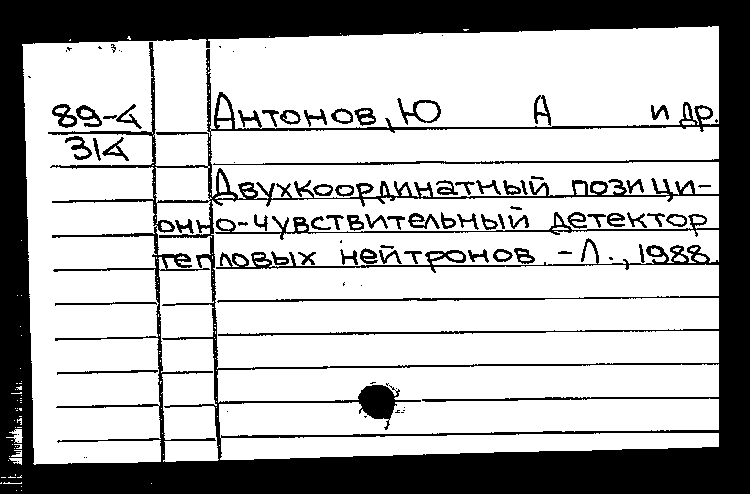 89-4 Антонов, Ю А и др.
314
Двухкоординатный позици-
онно-чувствительный детектор
тепловых нейтронов. - Л., 1988.